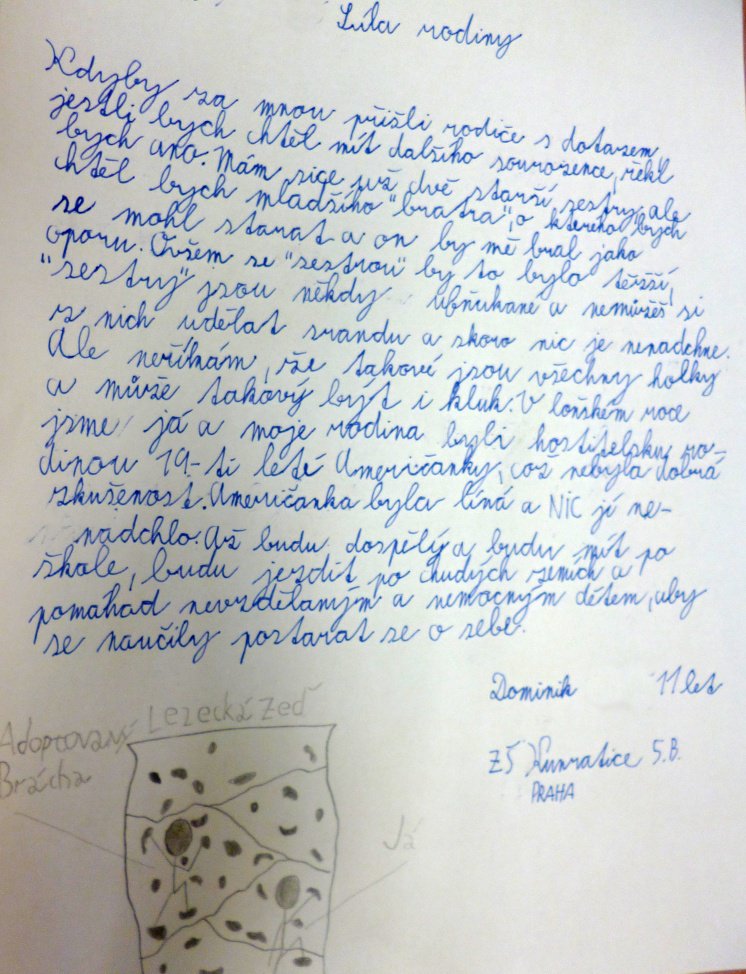 Síla rodiny
Kdyby za mnou přišli rodiče s dotazem
jestli bych chtěl mít dalšího sourozence, řekl
bych ano. Mám sice už dvě starší sestry, ale
chtěl bych mladšího "bratra", o kterého bych
se mohl starat a on by mě bral jako
oporu. Ovšem se "sestrou" by to bylo těžší,
"sestry" jsou někdy ubňukane a nemůžeš si
z nich udělat srandu a skoro nic je nenadchne.
Ale neříkám, že takové jsou všechny holky
a může takový být i kluk. V loňském roce
jsme já a moje rodina byli hostitelsku ro-
dinou 19-ti leté Američanky, což nebyla dobrá
zkušenost. Američanka byla líná a NIC jí ne-
nadchlo. Až budu dospělý a budu mít po
škole, budu jezdit po chudých zemích a
pomahad nevzdělaným a nemocným dětem, aby
se naučily postarat se o sebe.
Dominik 11 let
ZŠ Kunratice 5.B.
PRAHA
Lezecká zeď
Adoptovaný
Brácha
Já